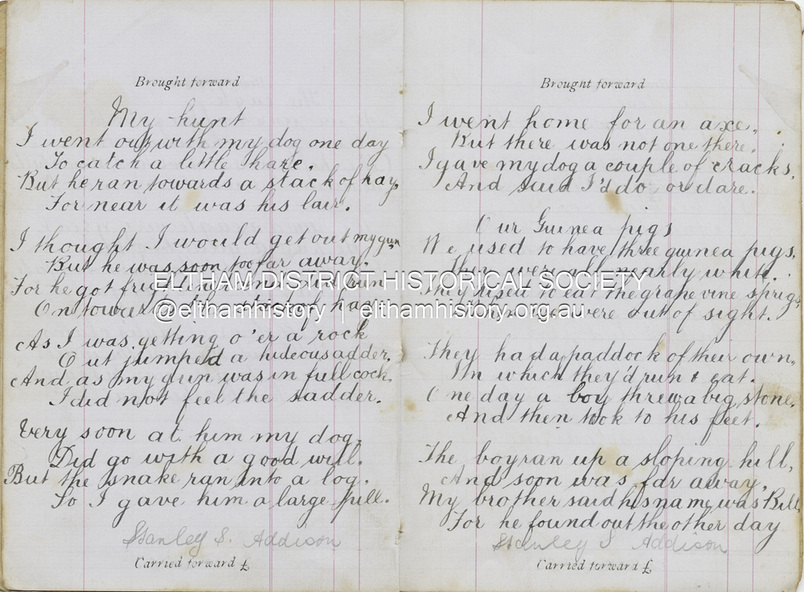 Brought forward
My hunt
I went out with my dog one day
To catch a little hare.
But he ran towards a stack of hay,
For near it was his lair.
I thought I would get out my gun
But he was soon too far away.
For he got
On towards
As I was getting o'er a rock
Out jumped a hideous adder,
And as my gun was in full cock
I did not feel the sadder.
Very soon at him my dog,
Did go with a good will.
But the snake ran into a log.
So I gave him a large pill.
Stanley S. Addison
Carried forward £
Brought forward
I went home for an axe,
But there was not one there.
I gave my dog a couple of cracks,
And said I'd do or dare.
Our Guinea pigs
We used to have three guinea pigs,
They were all nearly white.
They used to eat the grape vine sprigs
were out of sight.
They had a paddock of their own,
In which they'd run & eat.
One day a boy threw a big stone,
And then took to his feet.
The boy ran up a sloping hill,
And soon was far away,
My brother said his name was Bill,
For he found out the other day
Stanley S Addison
Carried forward £
ELTHAM DISTRICT HISTORICAL SOCIETY
@elthamhistory | elthamhistory.org.au